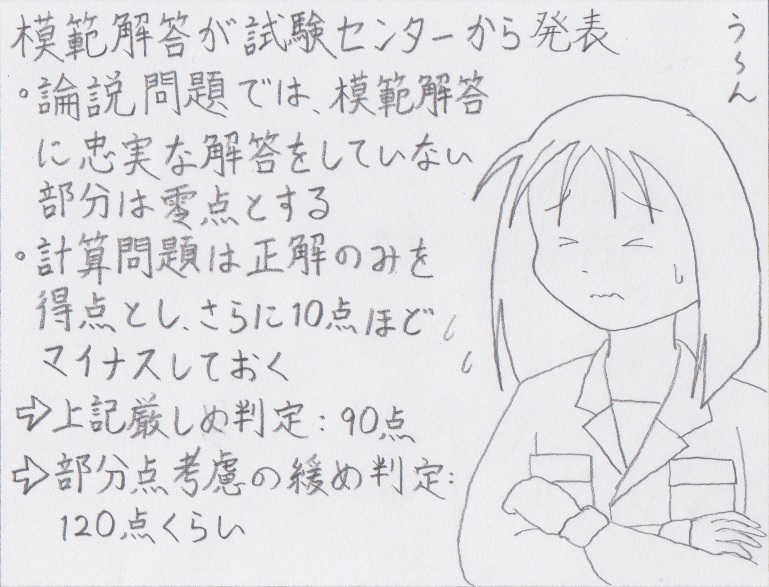 模範解答が試験センターから発表
・論説問題では、模範解答
に忠実な解答をしていない
部分は零点とする
・計算問題は正解のみを
得点とし、さらに10点ほど
マイナスしておく
⇨上記厳しめ判定:90点
⇨部分点考慮の緩め判定:
120点くらい
うーん